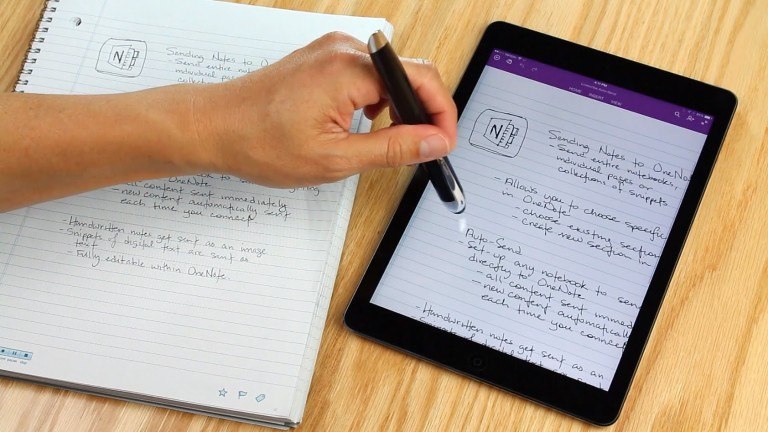 N
Sending Notes to O
- Send entire noteb
individual pages
collections of
- all content sent immediately
- new content automatically sent
each time you connect
- Handwritten notes get sent as an image
- Snippets of digital text are sent as
text
- Fully editable within OneNote.
HOME INSERT VIEW
N
Sending Notes to OneNote
- Send entire notebooks,
individual pages or
collections of snippets
- Allows you to choose specific
in OneNote
- choose existing section
- create new section in
Auto-Send
- Set up any notebook to send
directly to OneNote
- all content sent immed
- new content automatically
each time you connect
- Handwritten notes get sent as an
Snippets of digital text are sent